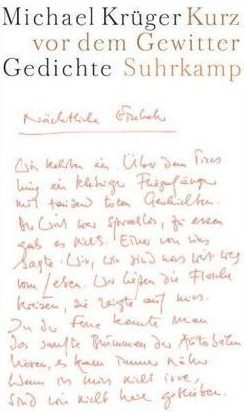 Michael Krüger Kurz
vor dem Gewitter
Gedichte Suhrkamp
Nächtliche
Wir kehrten ein. Über dem Tresen
hing ein klebriger Fliegenfänger
mit tausend toten Geschichten.
Der Wirt war sprachlos, zu essen
gab es nichts. Einer von uns
sagte: Wir, wir sind weit weg
vom Leben. Wir ließen die Flasche
kreisen, sie zeigte auf uns.
In der Ferne konnte man
das sanfte Brummen der Autobahn
hören, es kam immer näher.
Wenn ich mich nicht irre,
sind wir nicht lange geblieben.